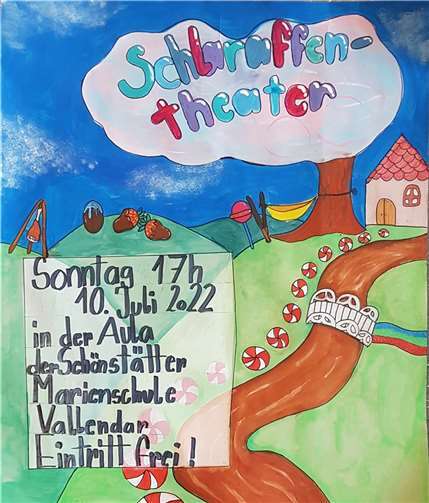 Schlaraffen-
theater
Sonntag 17h
10. Juli 2022
in der Aula
der Schönstätter
Marienschule
Vallendar
Eintritt frei!